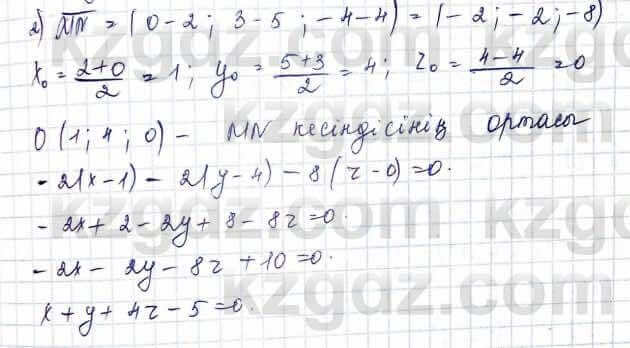 2) MN = (0-2; 3-5; -4-4) = (-2; -2; -8)
x₀ = (2+0)/2 = 1; y₀ = (5+3)/2 = 4; z₀ = (4-4)/2 = 0
O(1; 4; 0) - MN кесіндісінің ортасы
-2(x-1) - 2(y-4) - 8(z-0) = 0.
-2x + 2 - 2y + 8 - 8z = 0.
-2x - 2y - 8z + 10 = 0.
x + y + 4z - 5 = 0.
kzgdz.com